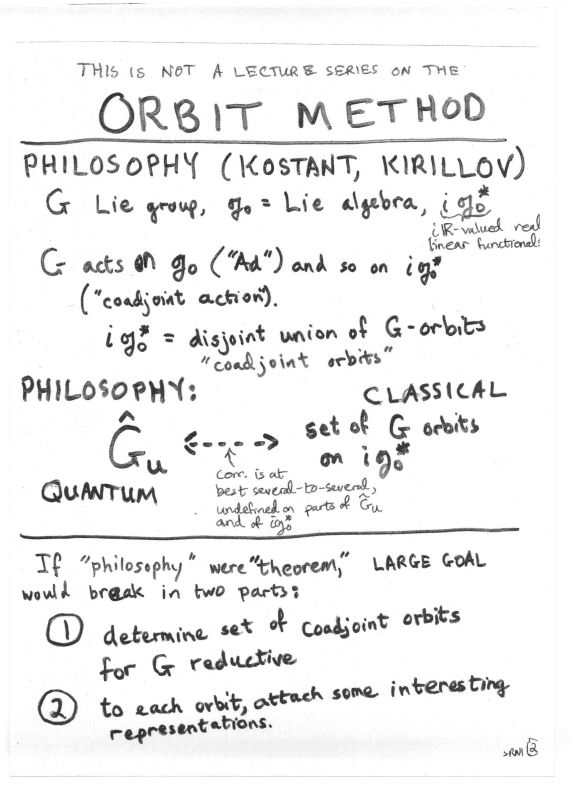 THIS IS NOT A LECTURE SERIES ON THE
ORBIT METHOD
PHILOSOPHY (KOSTANT, KIRILLOV)
G Lie group, 𝔤₀ = Lie algebra, i𝔤₀*
iℝ-valued real
linear functionals
G acts on 𝔤₀ ("Ad") and so on i𝔤₀*
("coadjoint action").
i𝔤₀* = disjoint union of G-orbits
"coadjoint orbits"
PHILOSOPHY: CLASSICAL
Ĝᵤ <----> set of G orbits
on i𝔤₀*
QUANTUM
↑
corr. is at
best several-to-several,
undefined on parts of Ĝᵤ
and of i𝔤₀*
If "philosophy" were "theorem," LARGE GOAL
would break in two parts:
① determine set of coadjoint orbits
for G reductive
② to each orbit, attach some interesting
representations.
SRNI 2